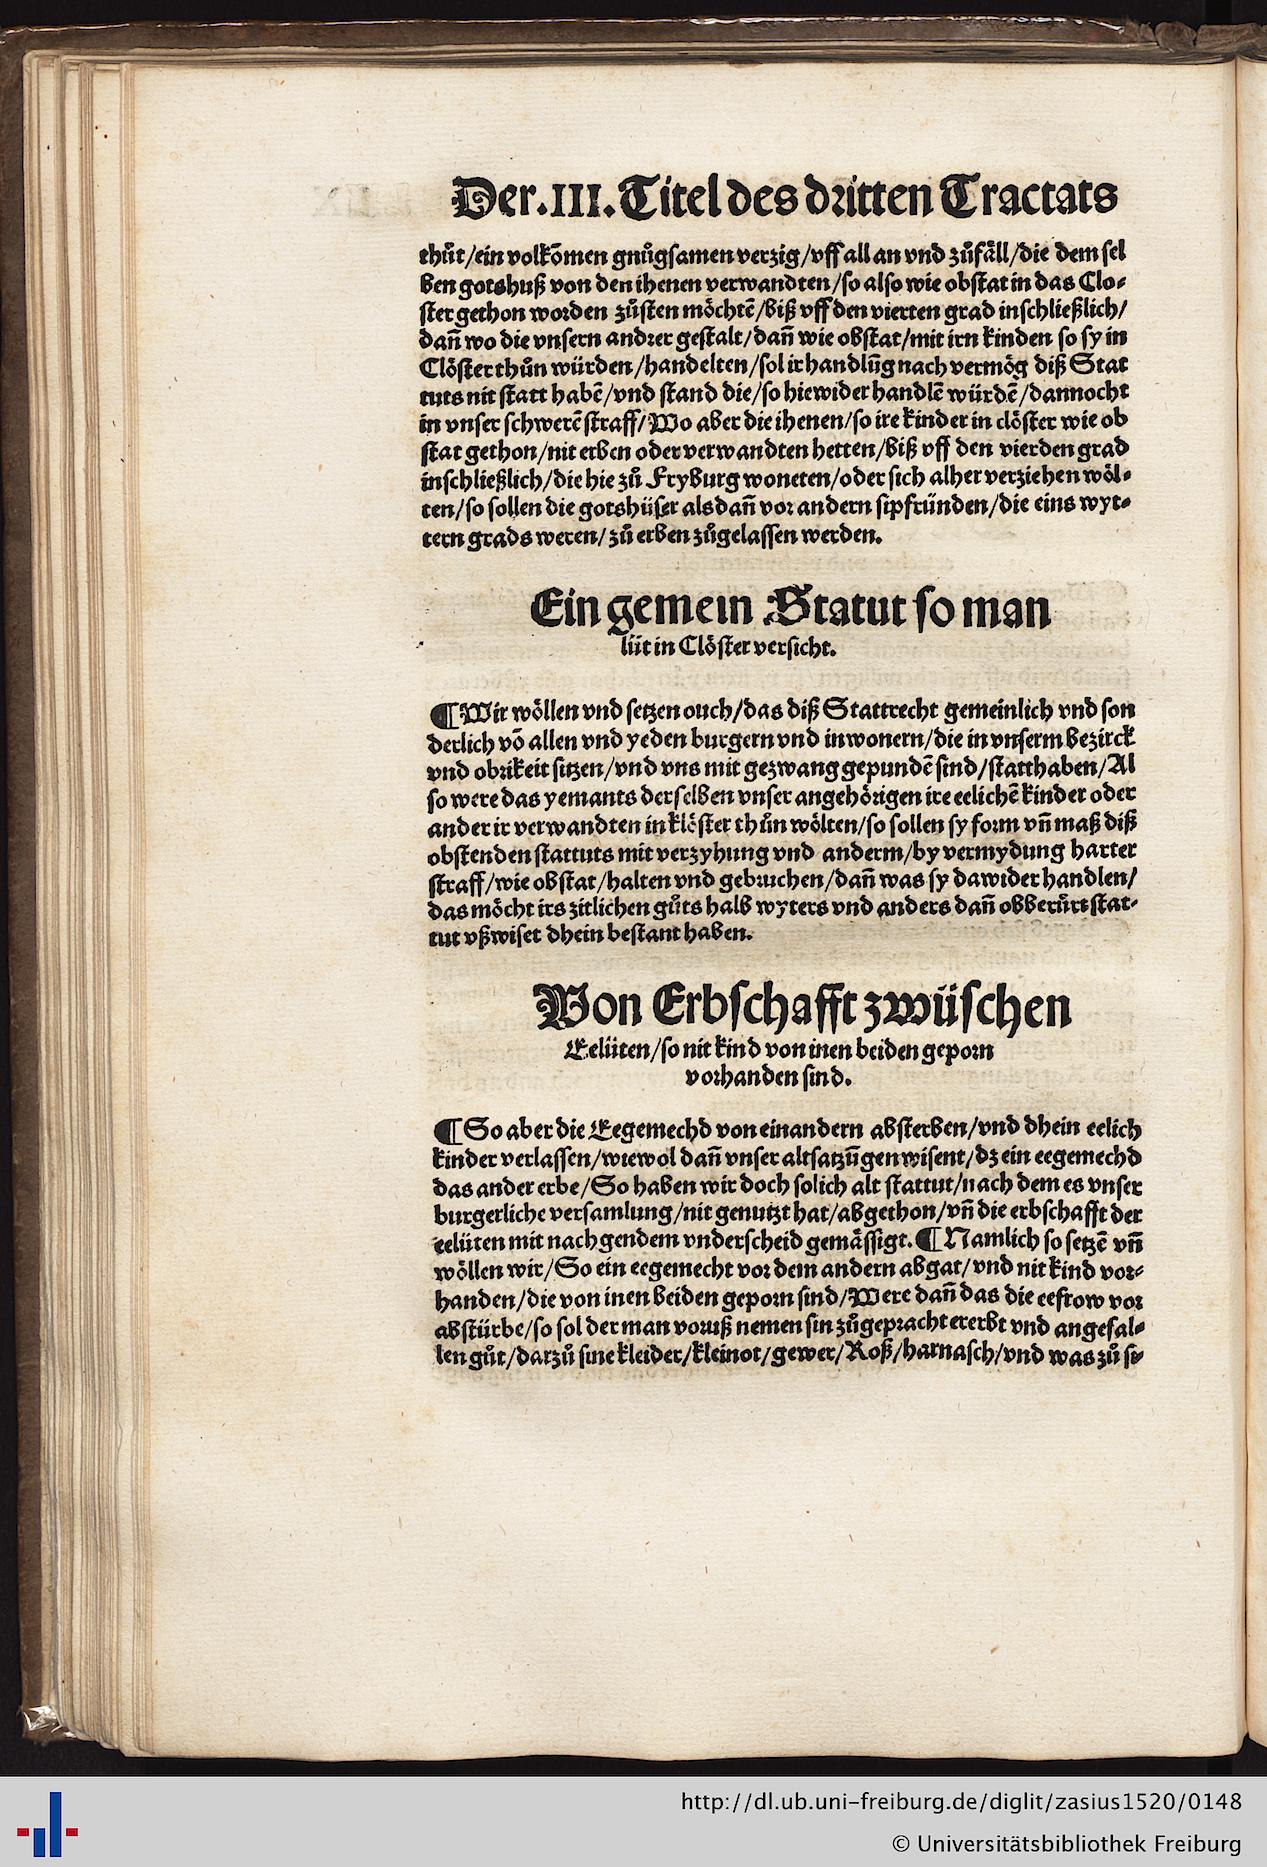 Der.III.Titel des dritten Tractats
thuͦt/ein volkōmen gnuͦgsamen verzig/vff all an vnd zuͦfaͤll/die dem sel
ben gotshuß von den ihenen verwandten/so also wie obstat in das Clo-
ster gethon worden zuͦsten moͤchtē/biß vff den vierten grad inschließlich/
dañ wo die vnsern andrer gestalt/dañ wie obstat/mit irn kinden so sy in
Cloͤster thuͦn wuͤrden/handelten/sol ir handlūg nach vermoͤg diß Stat
tuts nit statt habē/vnd stand die/so hiewider handlē wuͤrdē/dannocht
in vnser schwerē straff/Wo aber die ihenen/so ire kinder in cloͤster wie ob
stat gethon/nit erben oder verwandten hetten/biß vff den vierden grad
inschließlich/die hie zuͦ Fryburg woneten/oder sich alher verziehen woͤl-
ten/so sollen die gotshuͤser als dañ vor andern sipfruͤnden/die eins wyt-
tern grads weren/zuͦ erben zuͦgelassen werden.
Ein gemein Statut so man
luͤt in Cloͤster versicht.
¶Wir woͤllen vnd setzen ouch/das diß Stattrecht gemeinlich vnd son
derlich vō allen vnd yeden burgern vnd inwonern/die in vnserm bezirck
vnd obrikeit sitzen/vnd vns mit gezwang gepundē sind/statthaben/Al
so were das yemants derselben vnser angehoͤrigen ire eelichē kinder oder
ander ir verwandten in kloͤster thuͦn woͤlten/so sollen sy form vñ maß diß
obstenden stattuts mit verzyhung vnd anderm/by vermydung harter
straff/wie obstat/halten vnd gebruchen/dañ was sy dawider handlen/
das moͤcht irs zitlichen guͦts halb wyters vnd anders dañ obberuͤrt stat-
tut vßwiset dhein bestant haben.
Von Erbschafft zwuͤschen
Eeluͤten/so nit kind von inen beiden geporn
vorhanden sind.
¶So aber die Eegemechd von einandern absterben/vnd dhein eelich
kinder verlassen/wiewol dañ vnser altsatzūgen wisent/dz ein eegemechd
das ander erbe/So haben wir doch solich alt stattut/nach dem es vnser
burgerliche versamlung/nit genutzt hat/abgethon/vñ die erbschafft der
eeluͤten mit nachgendem vnderscheid gemaͤssigt.¶Namlich so setzē vñ
woͤllen wir/So ein eegemecht vor dem andern abgat/vnd nit kind vor-
handen/die von inen beiden geporn sind/Were dañ das die eefrow vor
abstuͤrbe/so sol der man voruß nemen sin zuͦgepracht ererbt vnd angefal-
len guͦt/darzuͦ sine kleider/kleinot/gewer/Roß/harnasch/vnd was zuͦ si-
http://dl.ub.uni-freiburg.de/diglit/zasius1520/0148
© Universitätsbibliothek Freiburg